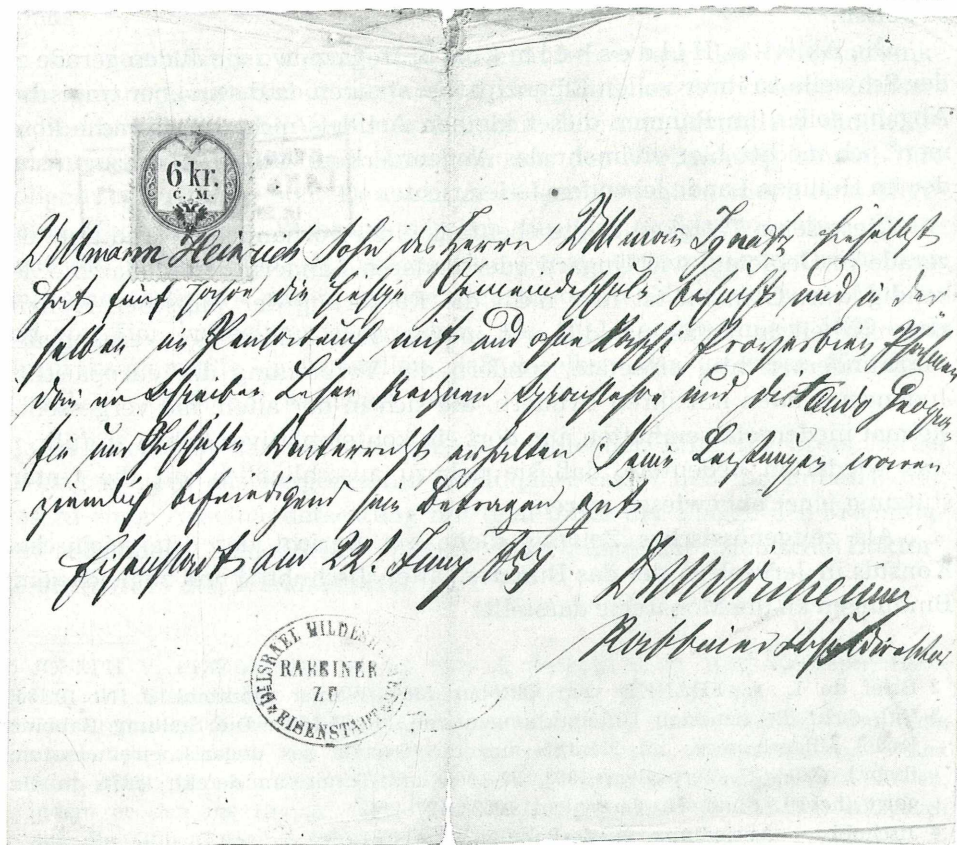 6 kr.
C. M.
Ullmann Heinrich Sohn des Herrn Ullmann Ignatz hieselbst
hat fünf Jahre die hiesige Gemeindeschule besucht und in der
selben im Pentateuch mit und ohne Raschi Proverbien Psalmen
dann im Schreiben Lesen Rechnen Sprachlehre und der
und Geschichte Unterricht erhalten Seine Leistungen waren
ziemlich befriedigend sein Betragen gut
Eisenstadt am 22. Juny
Rabbiner Schuldirektor
ISRAEL HILDES
RABBINER
ZU
EISENSTADT